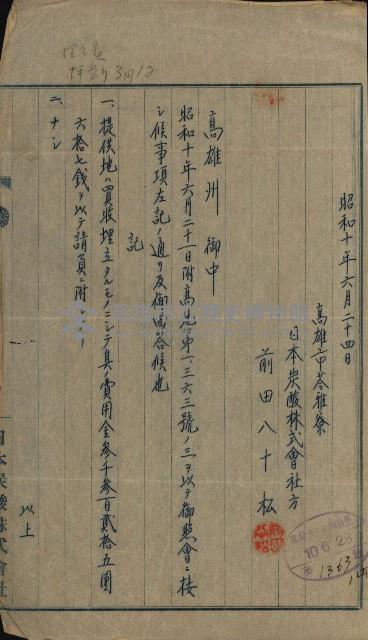 昭和十年六月二十四日
高雄市苓雅寮
日本炭酸株式會社方
前田八十松
高雄州 御中
昭和十年六月二十一日附高地第一三六三號ノ三ヲ以テ御照會ニ接
シ候事項左記ノ通リ及御回答候也
記
一、提供地ハ買收埋立タルモノニシテ其ノ費用金參千參百貳拾五圓
六拾七錢ヲ以テ請負ニ附
二、ナシ
以上
日本炭酸株式會社
10.6.2
1363